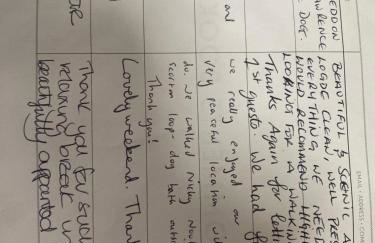 EDDON
WRENCE
DOG.
BEAUTIFUL & SCENIC A
LOGDE CLEAN, WELL PRES
EVERYTHING WE NEE
WOULD RECOMMEND HIGH
LOOKING FOR A WALKIN
Thanks Again for letti
1st guests. We had f
and
we really enjoyed our
very peaceful location wi
do. We walked Nicky
scorton loop - dog bath outsi
Thank you!
Lovely weekend. Than
Thank you for such
relaxing break in
beautifully appointed
EMAIL ADDRESS: COM